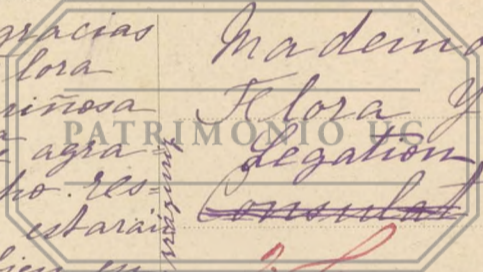 gracias
lora
riñosa
agra
ho. res=
estarai
bien en
Mademo
Flora Y
Legation
Consulat
PATRIMONIO UC